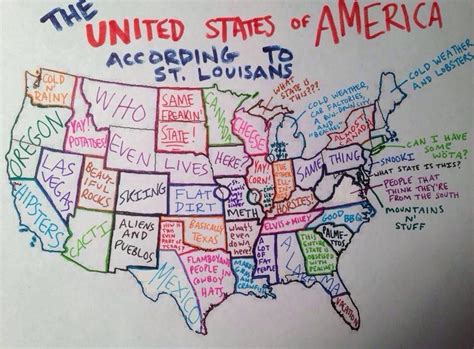 THE
UNITED STATES OF AMERICA
ACCORDING TO
ST. LOUISANS
COLD N' RAINY
OREGON
YAY! POTATOES!
WHO
EVEN
LIVES
HERE?
SAME FREAKIN' STATE!
CANADA
WHAT STATE IS THIS???
CHEESE
COLD WEATHER, CAR FACTORIES,
COLD WEATHER AND LOBSTERS
CAN I HAVE SOME WOTA?
SNOOKI
WHAT STATE IS THIS?
PEOPLE THAT THINK THEY'RE FROM THE SOUTH
MOUNTAINS N' STUFF
HIPSTERS
LAS VEGAS
BEAUTIFUL ROCKS
SKIING
FLAT DIRT
YAY! CORN!
THE OTHER
METH
HOOSIERS!
SAME THING
CACTI
ALIENS AND PUEBLOS
BASICALLY TEXAS
WHAT'S EVEN DOWN HERE?
ELVIS + MILEY
GOOD BBQ
PALMETTOS
MEXICO
FLAMBOYANT PEOPLE IN COWBOY HATS
MARDI GRAS AND CRAWFISH
A LOT OF FAT PEOPLE
ALABAMA
THIS ENTIRE STATE IS OBSESSED WITH
VACATION